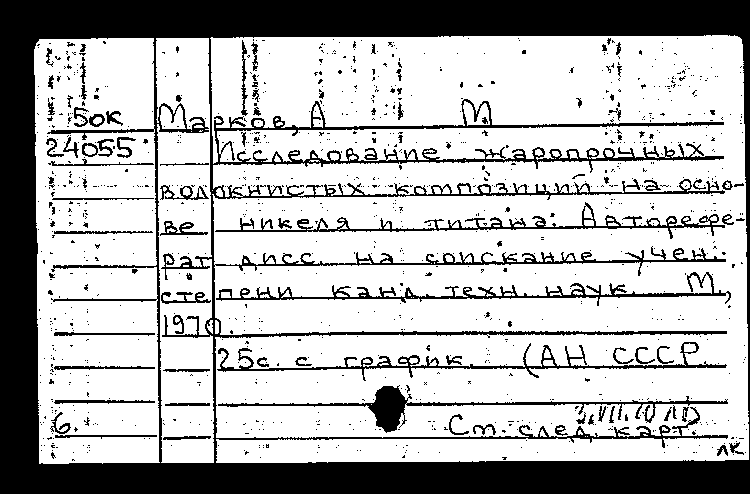 5ок Марков, А М
24055 Исследование жаропрочных
волокнистых композиций на осно-
ве никеля и титана: Авторефе-
рат дисс. на соискание учен.
степени канд. техн. наук. М.,
1970.
25с. с график. (АН СССР.
3.VII.70 ЛБ
6. См. след. карт.
ЛК